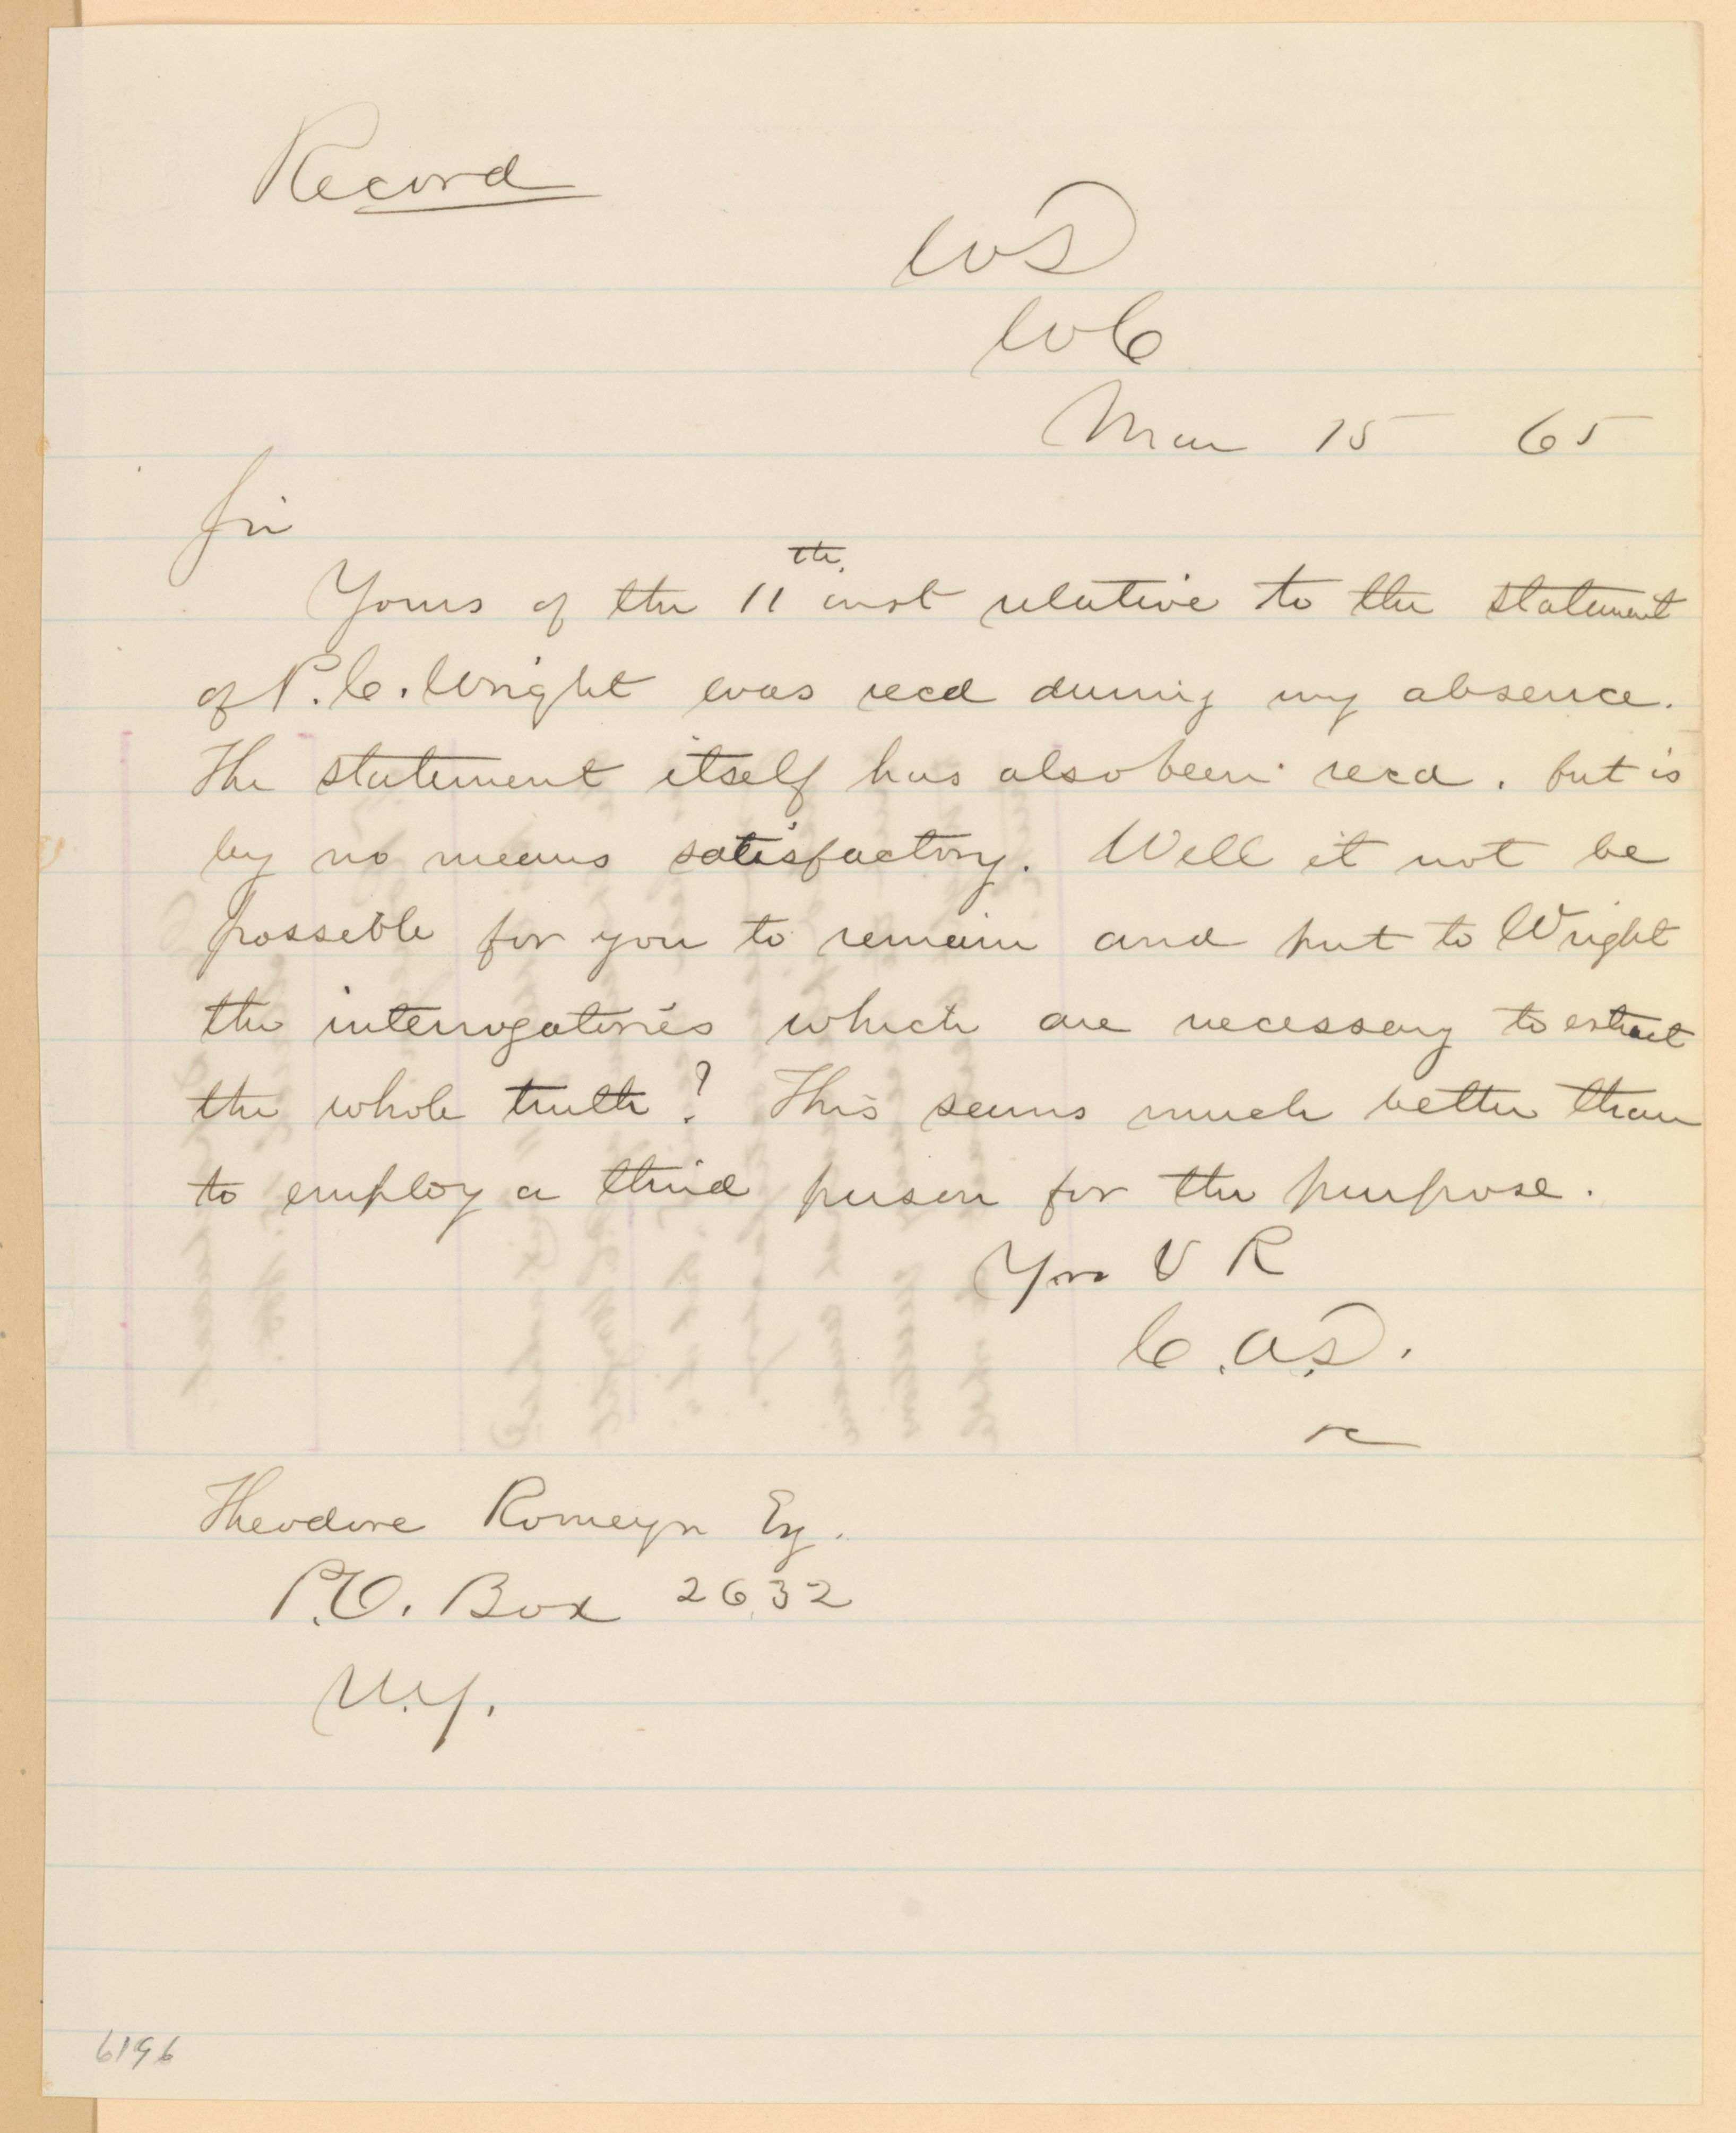 Record
WD
WC
Mar 15 65
Sir
Yours of the 11th. inst relative to the statement
of P. C. Wright was recd during my absence.
The statement itself has also been recd. but is
by no means satisfactory. Will it not be
possible for you to remain and put to Wright
the interrogatories which are necessary to extract
the whole truth? This seems much better than
to employ a third person for the purpose.
Yrs V R
C. A. D.
Theodore Romeyn Esq.
P.O. Box 2632
N.Y.
6196